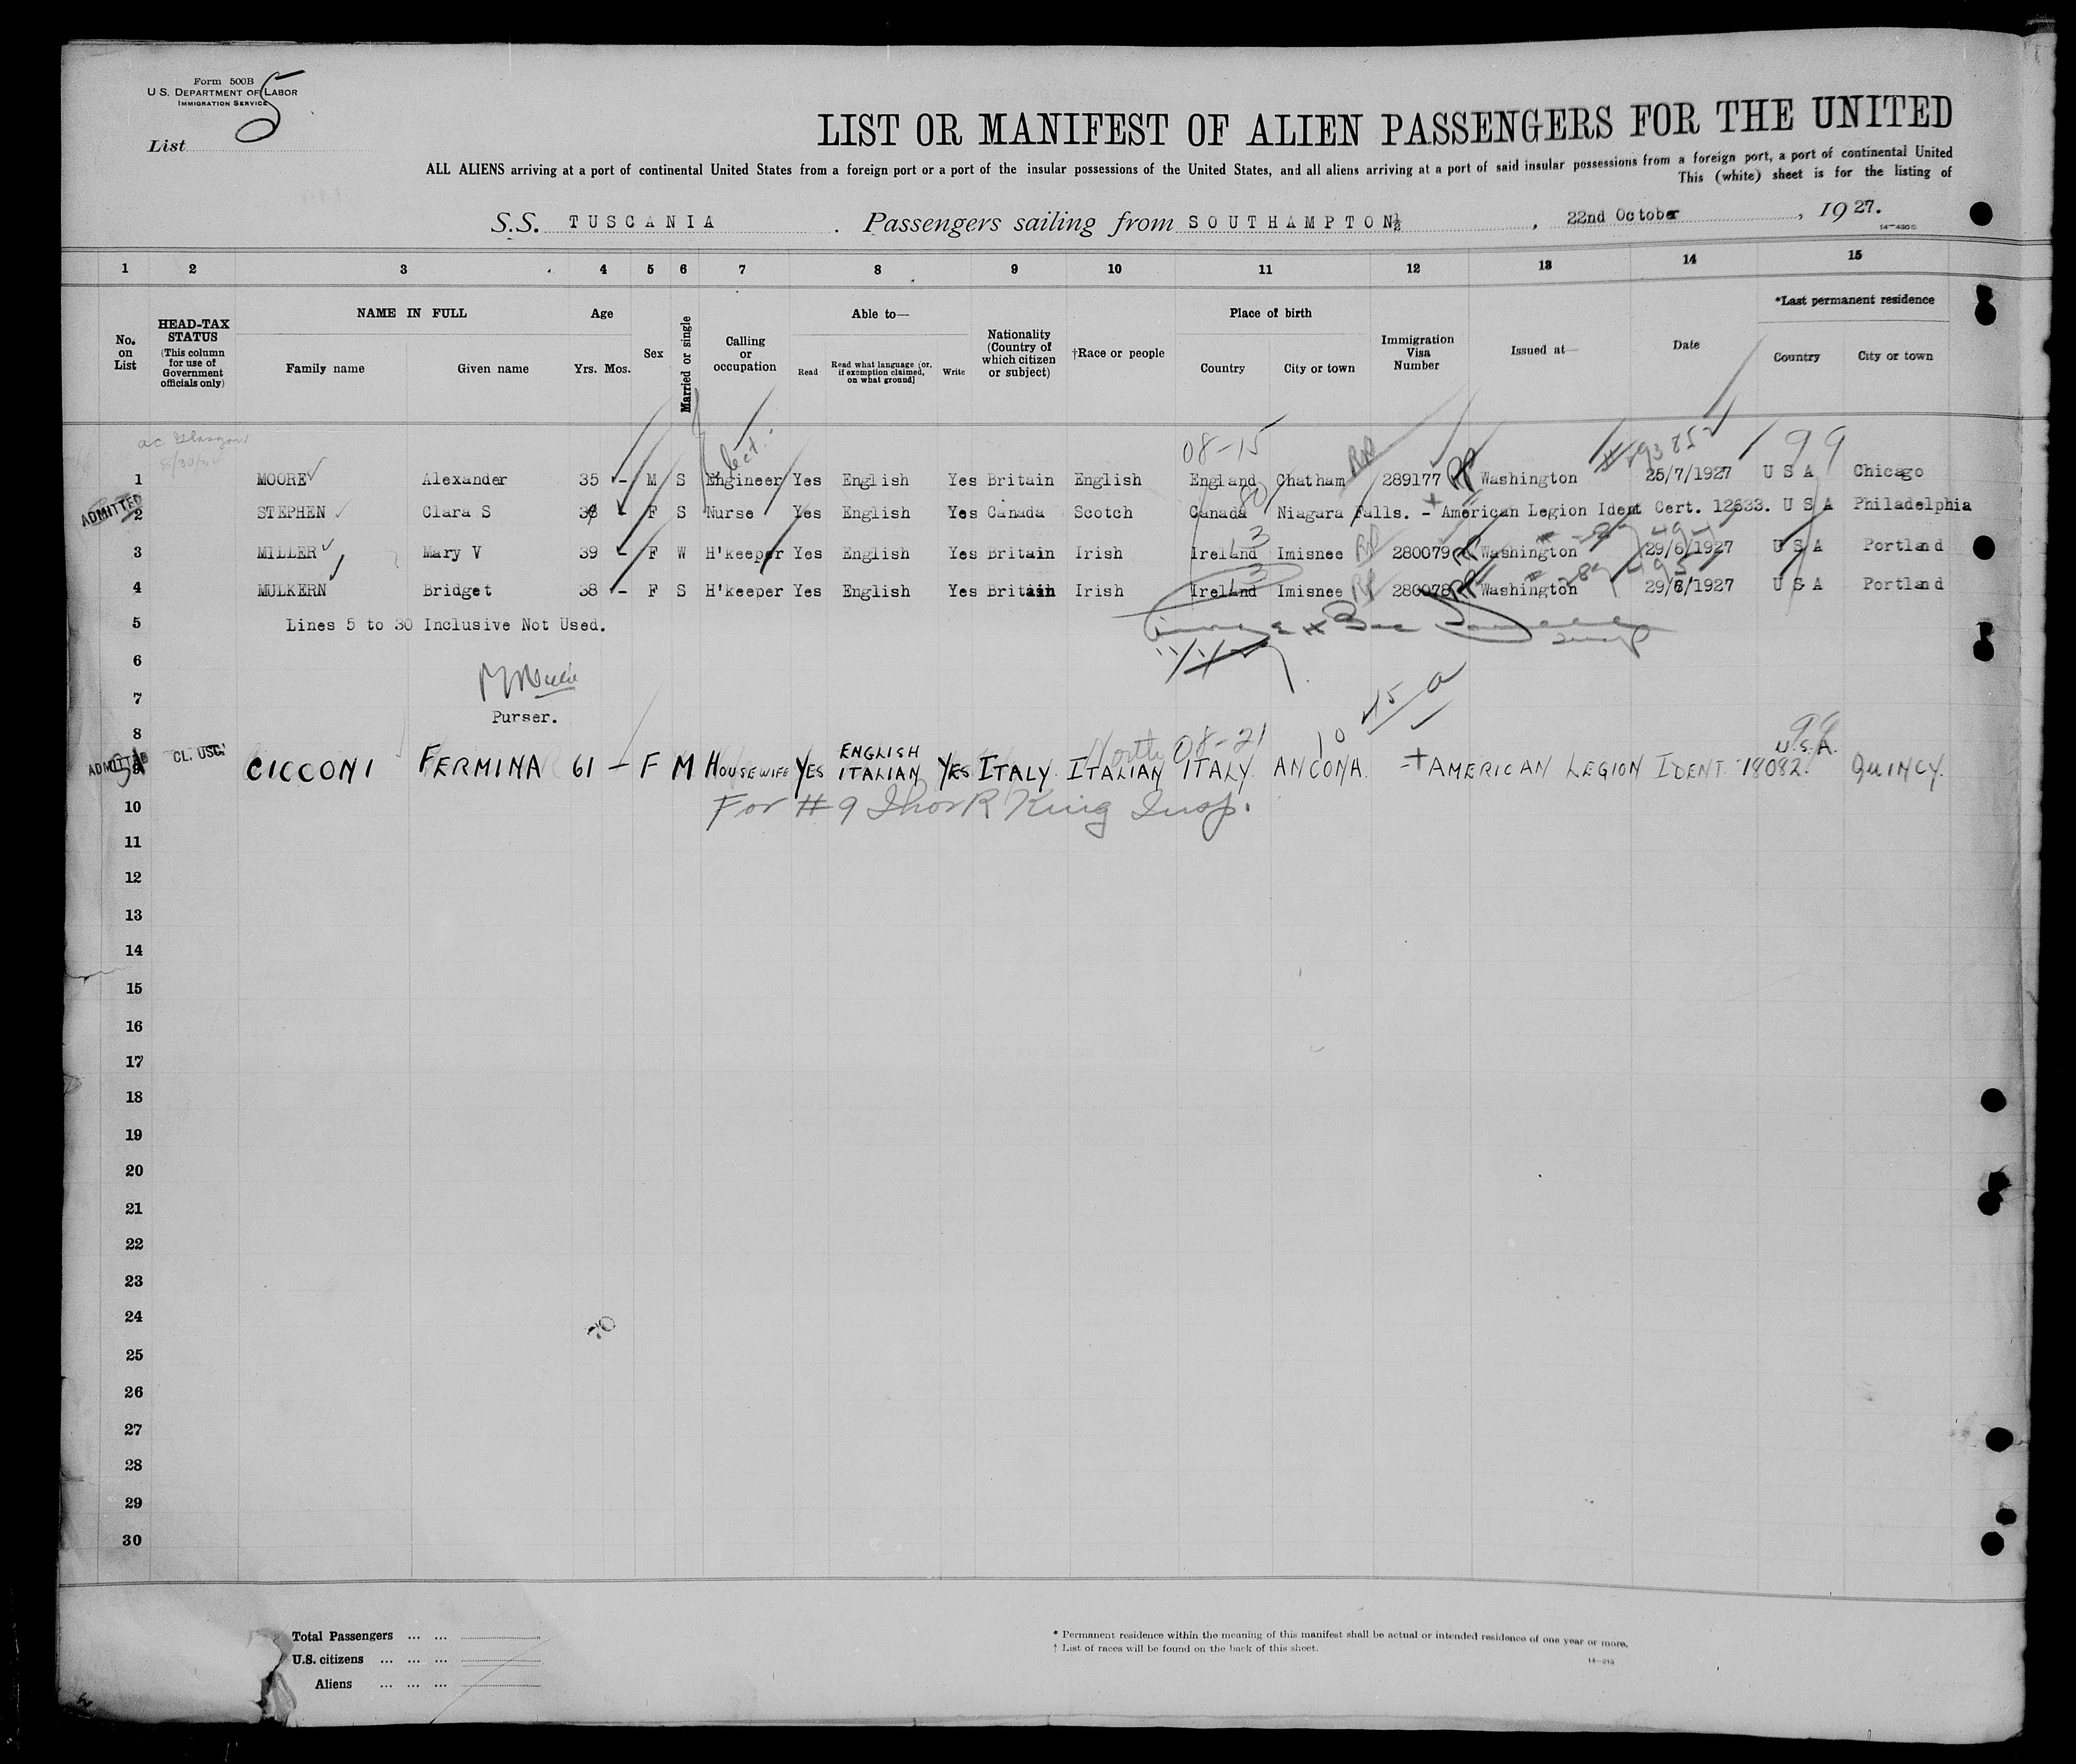 Form 500B
U. S. DEPARTMENT OF LABOR
IMMIGRATION SERVICE
List 5
LIST OR MANIFEST OF ALIEN PASSENGERS FOR THE UNITED
ALL ALIENS arriving at a port of continental United States from a foreign port or a port of the insular possessions of the United States, and all aliens arriving at a port of said insular possessions from a foreign port, a port of continental United
This (white) sheet is for the listing of
S.S. TUSCANIA . Passengers sailing from SOUTHAMPTON½ , 22nd October , 1927.
1 2 3 4 5 6 7 8 9 10 11 12 13 14 15
No. on List
HEAD-TAX STATUS
(This column for use of Government officials only)
NAME IN FULL
Family name Given name
Age
Yrs. Mos.
Sex
Married or single
Calling or occupation
Able to—
Read Read what language [or, if exemption claimed, on what ground] Write
Nationality (Country of which citizen or subject)
†Race or people
Place of birth
Country City or town
Immigration Visa Number
Issued at—
Date
*Last permanent residence
Country City or town
08-15 99
1 MOORE Alexander 35 - M S Engineer Yes English Yes Britain English England Chatham 289177 Washington 25/7/1927 U S A Chicago
ADMITTED
2 STEPHEN Clara S 38 - F S Nurse Yes English Yes Canada Scotch Canada Niagara Falls. - American Legion Ident Cert. 12633. U S A Philadelphia
3 MILLER Mary V 39 - F W H'keeper Yes English Yes Britain Irish Ireland Imisnee 280079 Washington 29/6/1927 U S A Portland
4 MULKERN Bridget 38 - F S H'keeper Yes English Yes Britain Irish Ireland Imisnee 280078 Washington 29/6/1927 U S A Portland
5 Lines 5 to 30 Inclusive Not Used.
6
7 Purser.
8
North 08-21 10 99
ADMITTED CL. USC. CICCONI FERMINA 61 - F M HOUSEWIFE YES ENGLISH ITALIAN YES ITALY ITALIAN ITALY ANCONA. - + AMERICAN LEGION IDENT 18082. U.S.A. QUINCY.
10 For #9 Thos R King Insp.
11
12
13
14
15
16
17
18
19
20
21
22
23
24
70
25
26
27
28
29
30
Total Passengers ... ...
U.S. citizens ... ... ...
Aliens ... ... ...
* Permanent residence within the meaning of this manifest shall be actual or intended residence of one year or more.
† List of races will be found on the back of this sheet.